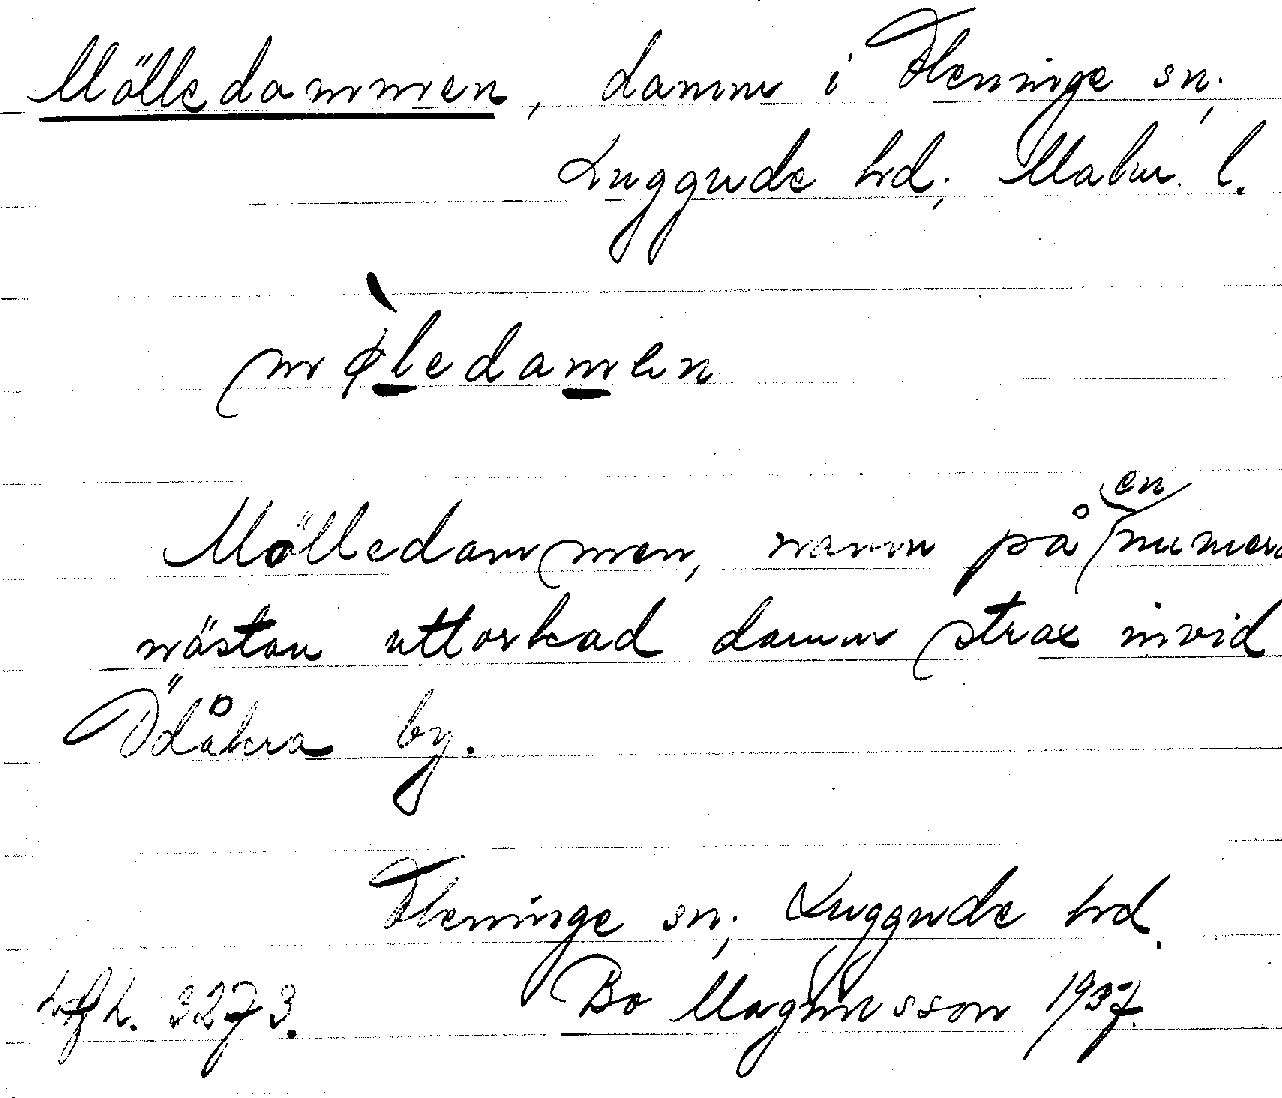 Mölledammen, damm i Fleninge sn,
Luggude hd, Malm. l.
mø̀ledamen
Mölledammen, namn på en numera
nästan uttorkad damm strax invid
Ödåkra by.
Fleninge sn, Luggude hd.
3273. Bo Magnusson 1937.